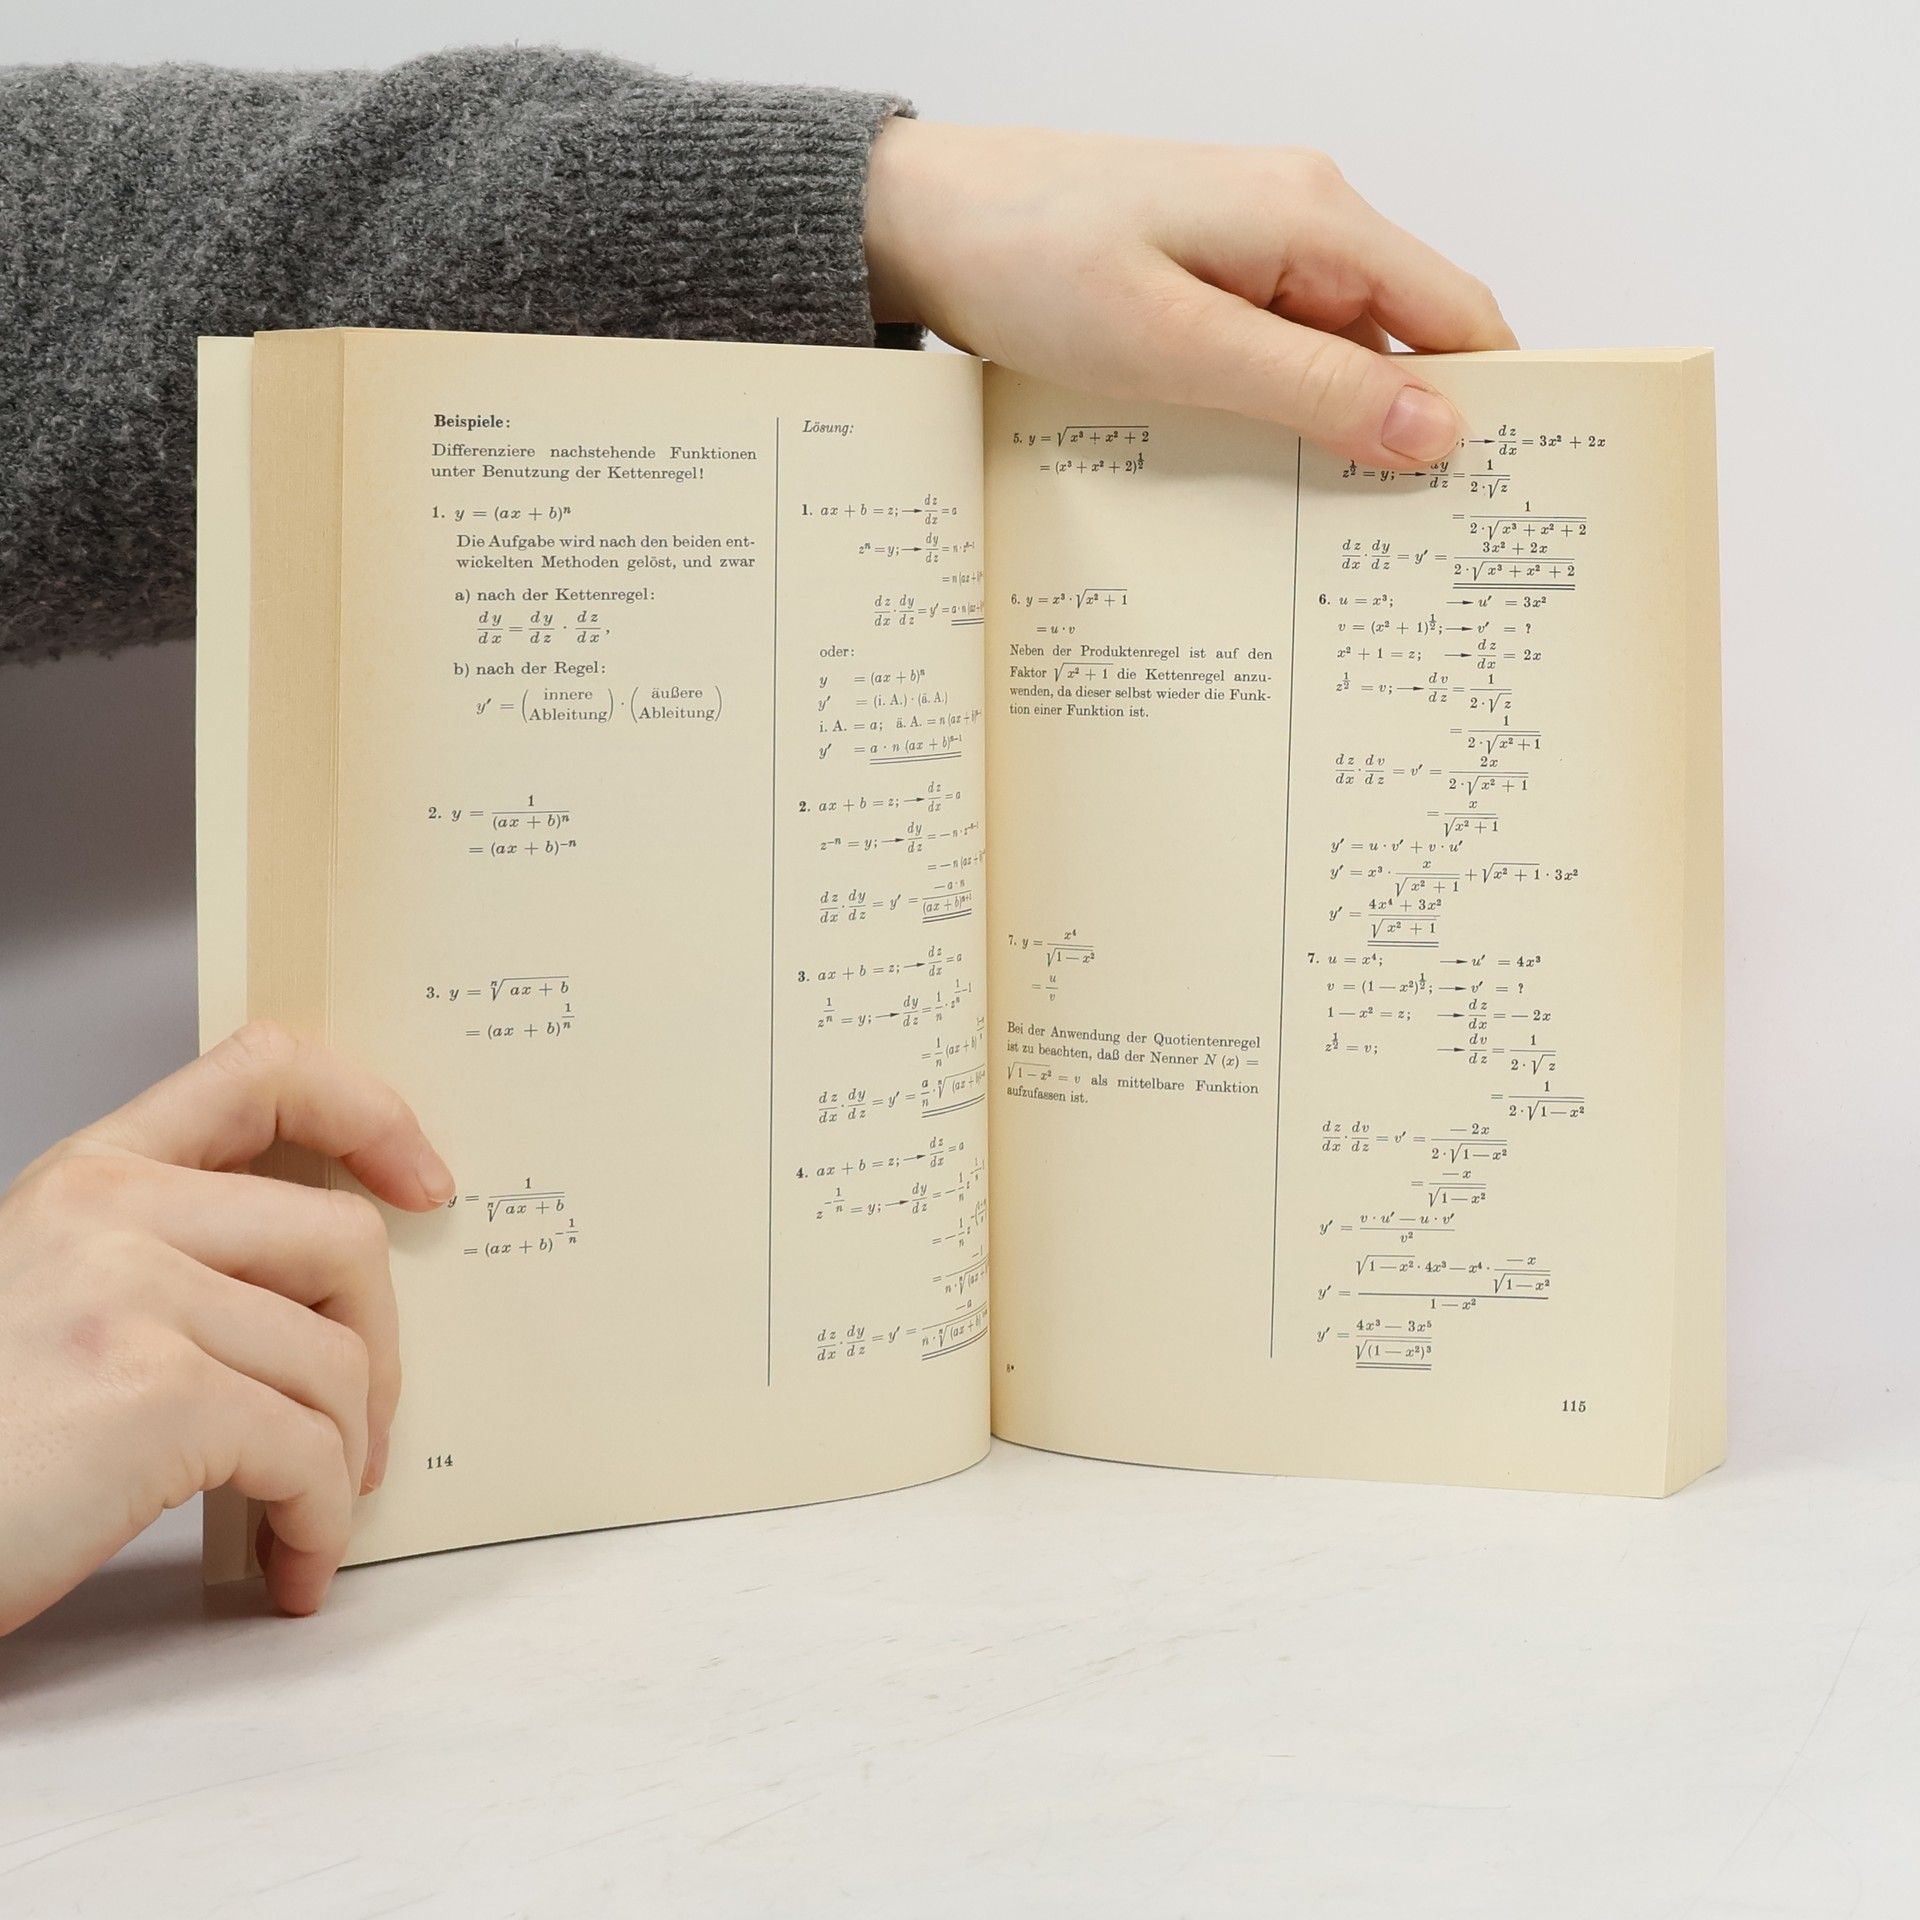 Beispiele:
Differenziere nachstehende Funktionen
unter Benutzung der Kettenregel!
1. y = (ax + b)ⁿ
Die Aufgabe wird nach den beiden ent-
wickelten Methoden gelöst, und zwar
a) nach der Kettenregel:
dy/dx = dy/dz · dz/dx,
b) nach der Regel:
y′ = (innere Ableitung) · (äußere Ableitung)
2. y = 1/(ax + b)ⁿ
= (ax + b)⁻ⁿ
3. y = ⁿ√(ax + b)
= (ax + b)^(1/n)
y = 1/ⁿ√(ax + b)
= (ax + b)^(−1/n)
114
Lösung:
1. ax + b = z; → dz/dx = a
zⁿ = y; → dy/dz = n · zⁿ⁻¹
= n (ax + b)
dz/dx · dy/dz = y′ = a · n (ax +
oder:
y = (ax + b)ⁿ
y′ = (i. A.) · (ä. A.)
i. A. = a; ä. A. = n (ax + b)ⁿ⁻
y′ = a · n (ax + b)ⁿ⁻¹
2. ax + b = z; → dz/dx = a
z⁻ⁿ = y; → dy/dz = − n · z⁻ⁿ⁻¹
= − n (ax + b)
dz/dx · dy/dz = y′ = −a · n/(ax + b)ⁿ⁺¹
3. ax + b = z; → dz/dx = a
z^(1/n) = y; → dy/dz = 1/n · z^(1/n − 1)
= 1/n (ax + b)
dz/dx · dy/dz = y′ = a/n · ⁿ√(ax + b)
4. ax + b = z; → dz/dx = a
z^(−1/n) = y; → dy/dz = − 1/n z^(−1/n − 1)
= − 1/n z
= −1/n · ⁿ√(ax +
dz/dx · dy/dz = y′ = −a/n · ⁿ√(ax + b)
5. y = √(x³ + x² + 2)
= (x³ + x² + 2)^(1/2)
6. y = x³ · √(x² + 1)
= u · v
Neben der Produktenregel ist auf den
Faktor √(x² + 1) die Kettenregel anzu-
wenden, da dieser selbst wieder die Funk-
tion einer Funktion ist.
7. y = x⁴/√(1 − x²)
= u/v
Bei der Anwendung der Quotientenregel
ist zu beachten, daß der Nenner N (x) =
√(1 − x²) = v als mittelbare Funktion
aufzufassen ist.
8*
; → dz/dx = 3x² + 2x
z^(1/2) = y; → dy/dz = 1/(2 · √z)
= 1/(2 · √(x³ + x² + 2))
dz/dx · dy/dz = y′ = (3x² + 2x)/(2 · √(x³ + x² + 2))
6. u = x³; → u′ = 3x²
v = (x² + 1)^(1/2); → v′ = ?
x² + 1 = z; → dz/dx = 2x
z^(1/2) = v; → dv/dz = 1/(2 · √z)
= 1/(2 · √(x² + 1))
dz/dx · dv/dz = v′ = 2x/(2 · √(x² + 1))
= x/√(x² + 1)
y′ = u · v′ + v · u′
y′ = x³ · x/√(x² + 1) + √(x² + 1) · 3x²
y′ = (4x⁴ + 3x²)/√(x² + 1)
7. u = x⁴; → u′ = 4x³
v = (1 − x²)^(1/2); → v′ = ?
1 − x² = z; → dz/dx = − 2x
z^(1/2) = v; → dv/dz = 1/(2 · √z)
= 1/(2 · √(1 − x²))
dz/dx · dv/dz = v′ = − 2x/(2 · √(1 − x²))
= − x/√(1 − x²)
y′ = (v · u′ − u · v′)/v²
y′ = (√(1 − x²) · 4x³ − x⁴ · − x/√(1 − x²))/(1 − x²)
y′ = (4x³ − 3x⁵)/√((1 − x²)³)
115